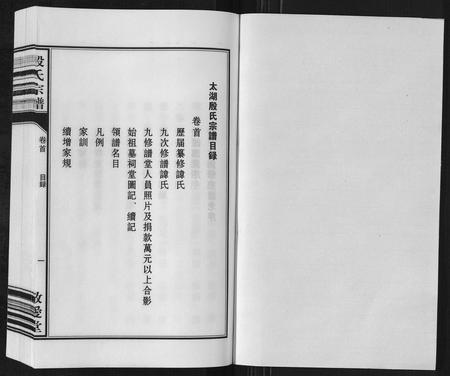 太湖殷氏宗譜目録
卷首
歷屆纂修諱氏
九次修譜諱氏
九修譜堂人員照片及捐款萬元以上合影
始祖墓祠堂圖記、續記
領譜名目
凡例
家訓
續增家規
殷氏宗譜
卷首
目録
一
敬愛堂